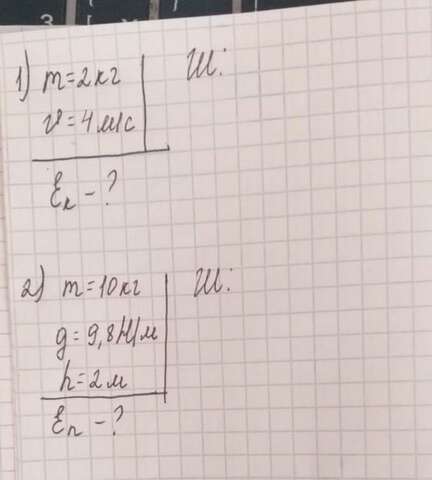 3
1) m=2кг Ш:
v=4м/с
Eк-?
2) m=10кг Ш:
g=9,8Н/м
h=2м
Eп-?